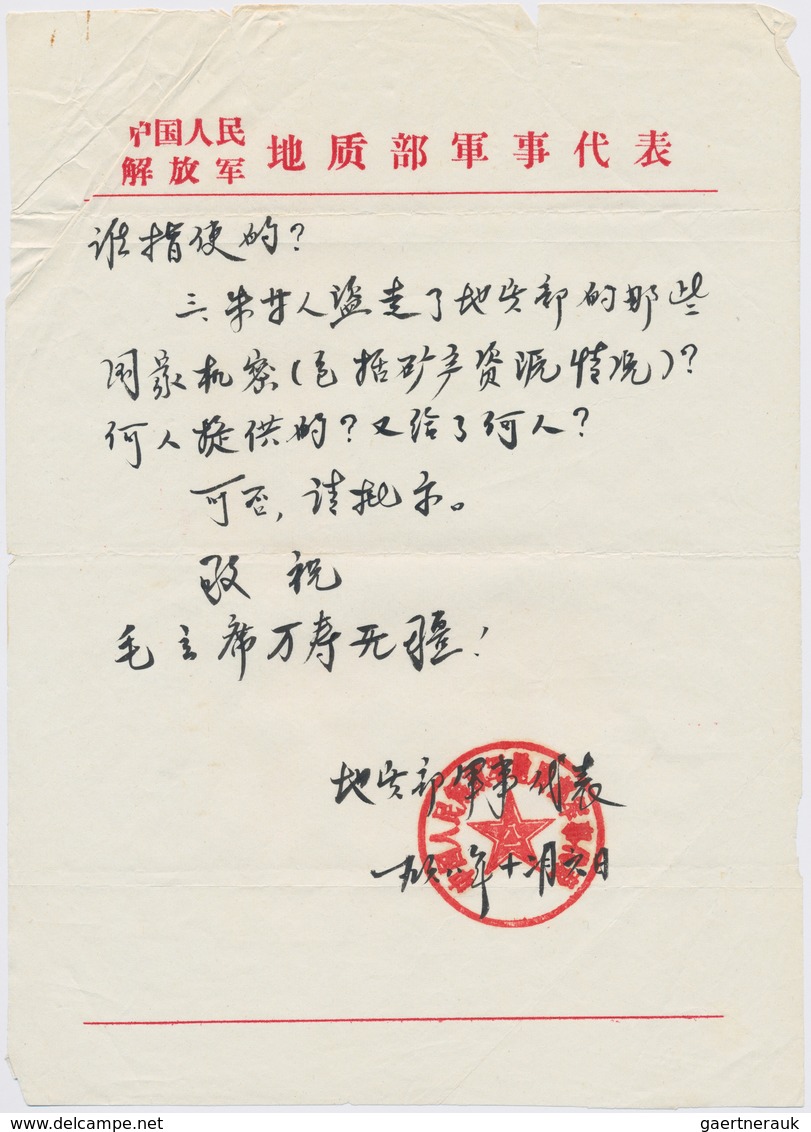 中国人民
解放军 地质部軍事代表
谁指使的?
三、朱某人盗走了地质部的那些
国家机密(包括矿产资源情况)?
何人提供的?又给了何人?
可否,请批示。
敬祝
毛主席万寿无疆!
地质部軍事代表
一九六八年十二月六日
gaertnerauk